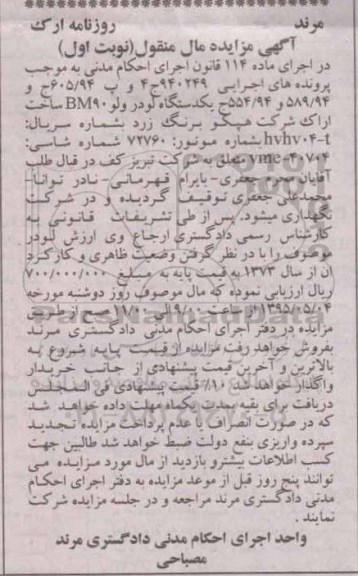 مرند روزنامه ارک
آگهی مزایده مال منقول(نوبت اول)
در اجرای ماده ۱۱۴ قانون اجرای احکام مدنی به موجب
پرونده های اجرایی ۹۴۰۲۴۹ج۴ و پ ۶۰۵/۹۴ج و
۵۸۹/۹۴ و ۵۵۴/۹۴ج یکدستگاه لودر ولو BM۹۰ ساخت
اراک شرکت هپکو برنگ زرد بشماره سریال:
hvhv۰۴-t بشماره موتور: ۷۲۷۶۰ شماره شاسی:
vme-۴۰۷۰۴ متعلق به شرکت تبریز کف در قبال طلب
آقایان محرم جعفری- بایرام قهرمانی- نادر توانا-
محمدعلی جعفری توقیف گردیده و در شرکت
نگهداری میشود. پس از طی تشریفات قانونی به
کارشناس رسمی دادگستری ارجاع وی ارزش لودر
موصوف را با در نظر گرفتن وضعیت ظاهری و کارکرد
آن از سال ۱۳۷۳ به قیمت پایه به مبلغ ۷۰۰/۰۰۰/۰۰۰
ریال ارزیابی نموده که مال موصوف روز دوشنبه مورخه
۱۳۹۵/۰۵/۰۴ از ساعت ۹ الی ۱۰ صبح از طریق
مزایده در دفتر اجرای احکام مدنی دادگستری مرند
بفروش خواهد رفت مزایده از قیمت پایه شروع به
بالاترین و آخرین قیمت پیشنهادی از جانب خریدار
واگذار خواهد شد ۱۰٪ قیمت پیشنهادی فی المجلس
دریافت برای بقیه بمدت یکماه مهلت داده خواهد شد
که در صورت انصراف یا عدم پرداخت مزایده تجدید
سپرده واریزی بنفع دولت ضبط خواهد شد طالبین جهت
کسب اطلاعات بیشتر و بازدید از مال مورد مزایده می
توانند پنج روز قبل از موعد مزایده به دفتر اجرای احکام
مدنی دادگستری مرند مراجعه و در جلسه مزایده شرکت
نمایند .
واحد اجرای احکام مدنی دادگستری مرند
مصباحی